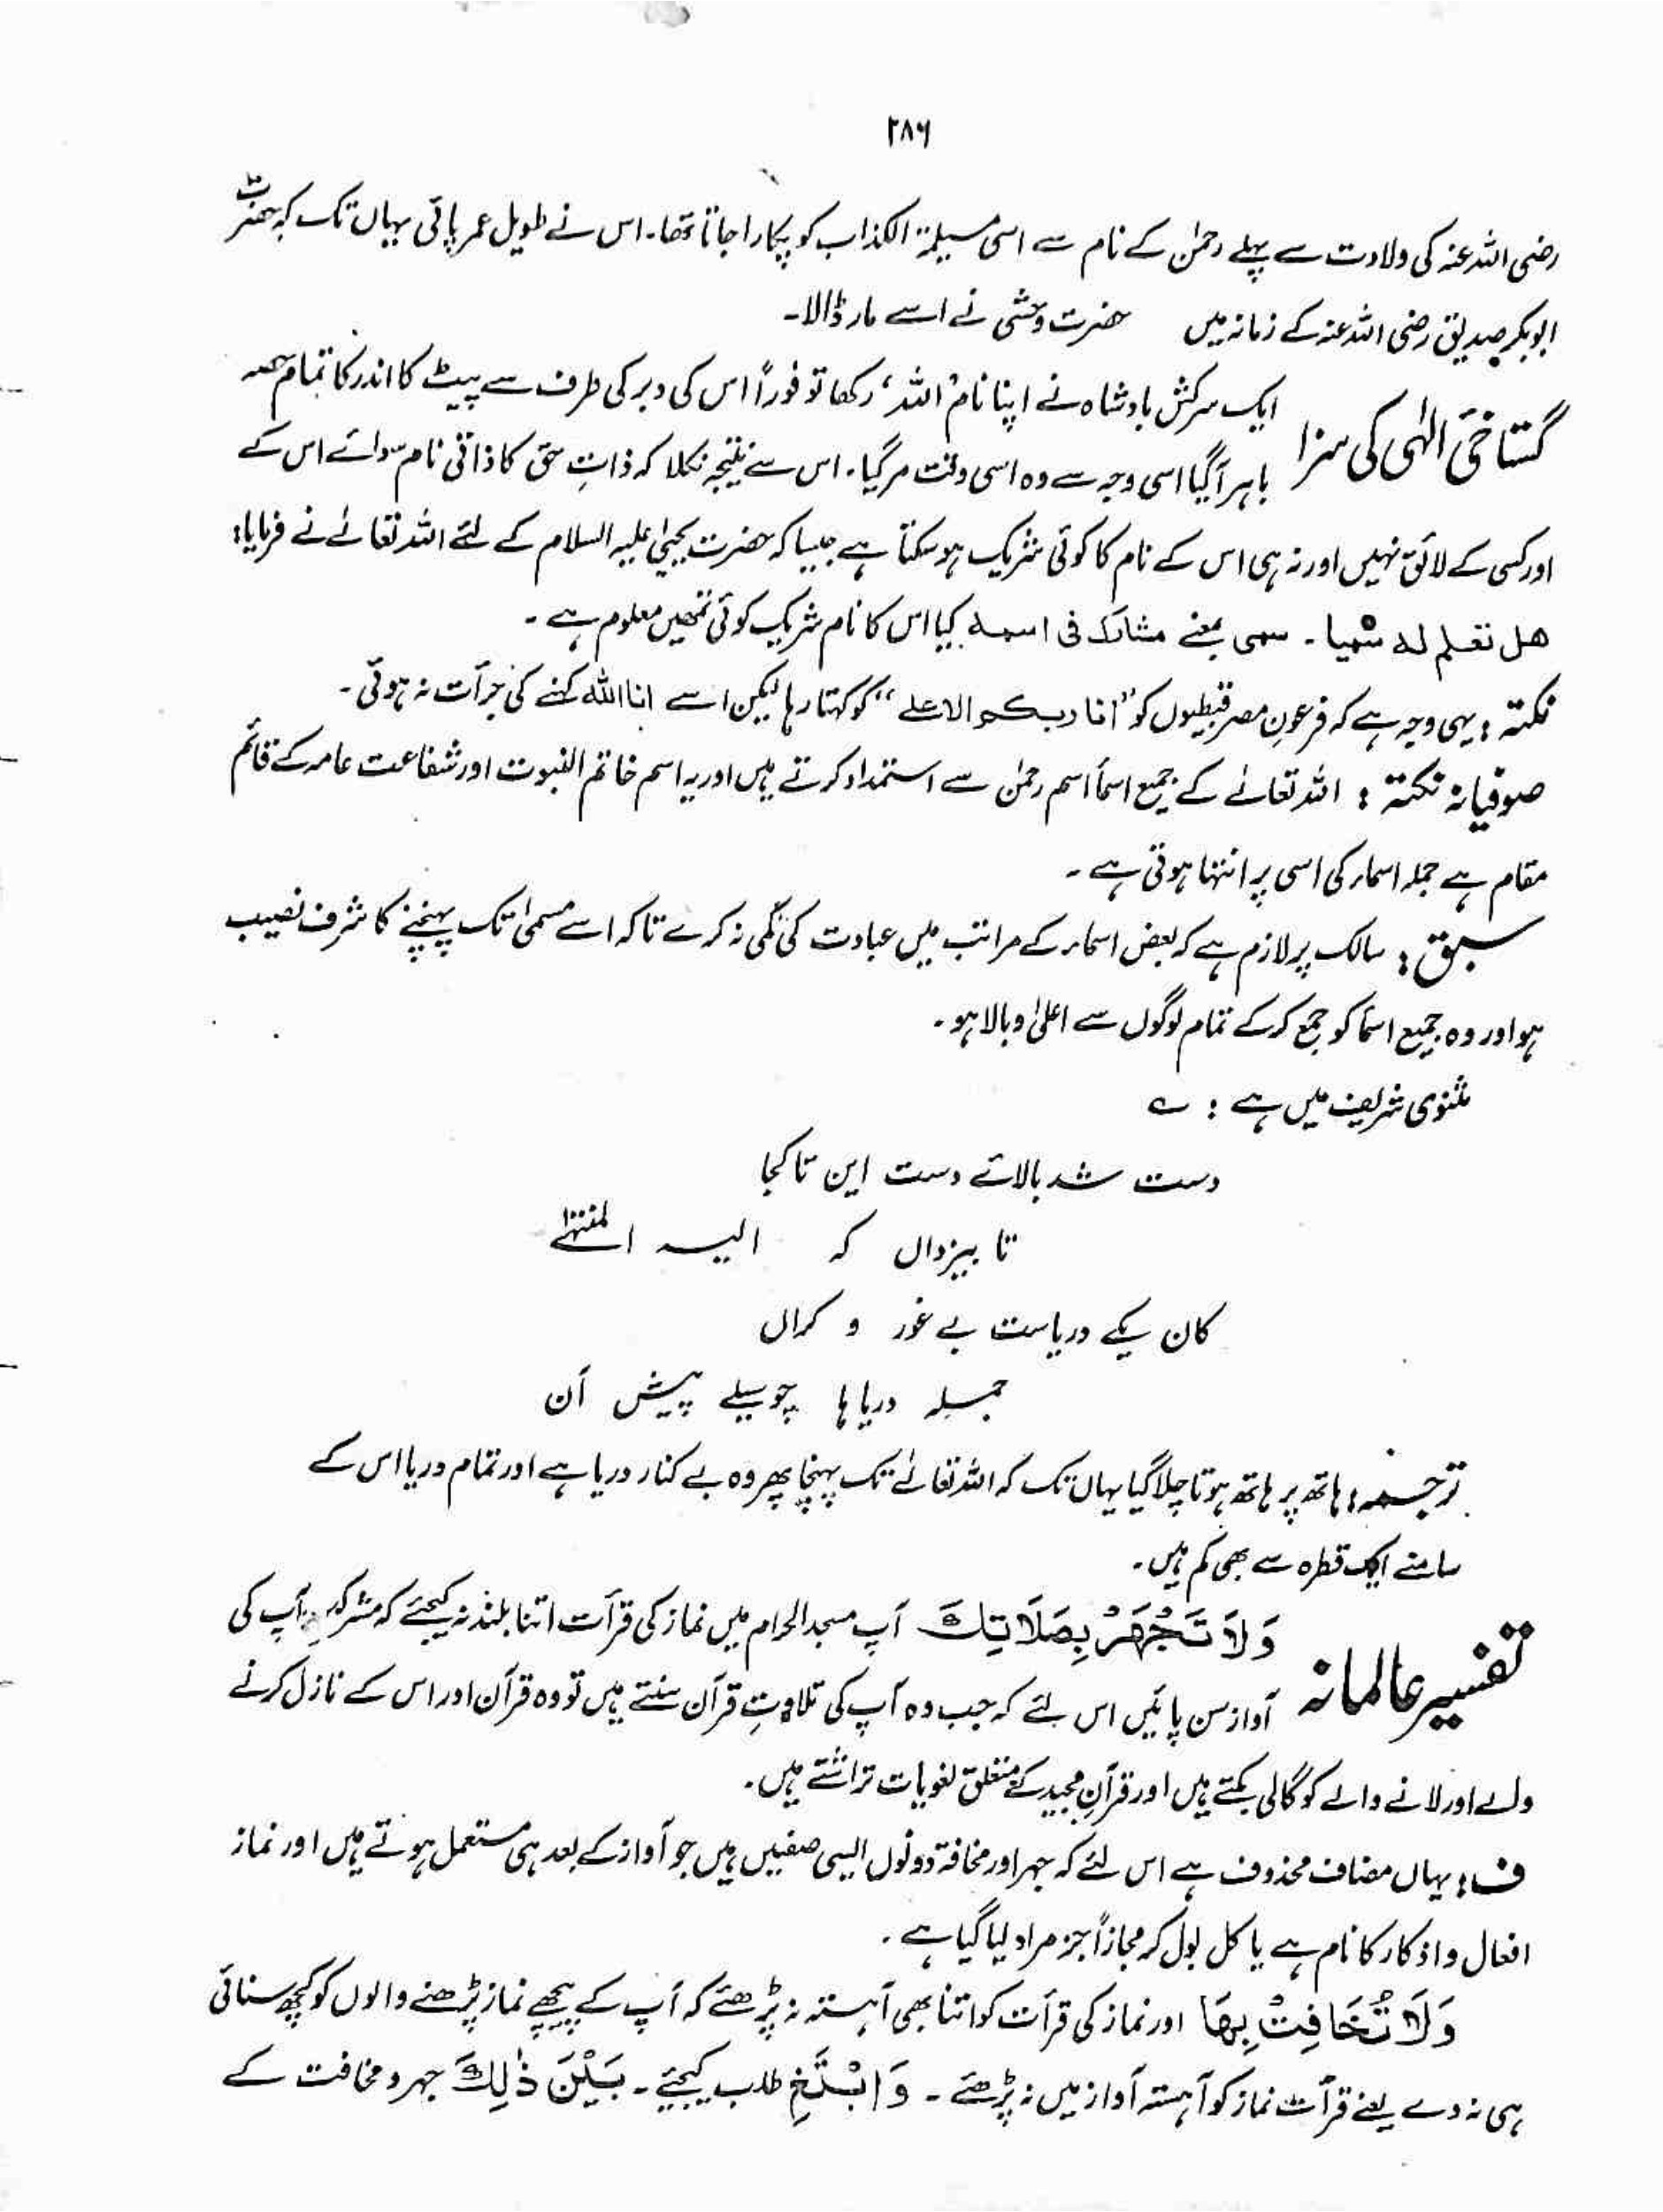 ۲۸۶
رضی اللہ عنہ کی ولادت سے پہلے رحمٰن کے نام سے اسی مسیلمۃ الکذاب کو پکارا جاتا تھا۔ اس نے طویل عمر پائی یہاں تک کہ حضرت
ابوبکر صدیق رضی اللہ عنہ کے زمانہ میں حضرت وحشی نے اسے مار ڈالا۔
گستاخیٔ الٰہی کی سزا ایک سرکش بادشاہ نے اپنا نام 'اللہ' رکھا تو فوراً اس کی دبر کی طرف سے پیٹ کا اندر کا تمام حصہ
باہر آگیا اسی وجہ سے وہ اسی وقت مر گیا۔ اس سے نتیجہ نکلا کہ ذاتِ حق کا ذاتی نام سوائے اس کے
اور کسی کے لائق نہیں اور نہ ہی اس کے نام کا کوئی شریک ہو سکتا ہے جیسا کہ حضرت یحییٰ علیہ السلام کے لئے اللہ تعالےٰ نے فرمایا:
ھل تعلم لہ سمیا۔ سمی بمعنے مشارک فی اسمہ کیا اس کا نام شریک کوئی تمھیں معلوم ہے۔
نکتہ : یہی وجہ ہے کہ فرعونِ مصر قبطیوں کو "انا ربکم الاعلے" کو کہتا رہا لیکن اسے انا اللہ کہنے کی جرأت نہ ہوئی۔
صوفیانہ نکتہ : اللہ تعالےٰ کے جمیع اسمأ اسم رحمٰن سے استمداد کرتے ہیں اور یہ اسم خاتم النبوت اور شفاعت عامہ کے قائم
مقام ہے جملہ اسماء کی اسی پر انتہا ہوتی ہے۔
سبق : سالک پر لازم ہے کہ بعض اسماء کے مراتب میں عبادت کی کمی نہ کرے تاکہ اسے مسمیٰ تک پہنچنے کا شرف نصیب
ہو اور وہ جمیع اسمأ کو جمع کرکے تمام لوگوں سے اعلیٰ و بالا ہو۔
مثنوی شریف میں ہے : ؎
دست شد بالائے دست این تا کجا
تا بیزداں کہ الیہ المنتہٰے
کان یکے دریاست بے غور و کراں
جملہ دریاہا چو سیلے پیش آن
ترجمہ : ہاتھ پر ہاتھ ہوتا چلا گیا یہاں تک کہ اللہ تعالےٰ تک پہنچا پھر وہ بے کنار دریا ہے اور تمام دریا اس کے
سامنے ایک قطرہ سے بھی کم ہیں۔
تفسیر عالمانہ وَلَا تَجْهَرْ بِصَلَاتِكَ آپ مسجد الحرام میں نماز کی قرأت اتنا بلند نہ کیجئے کہ مشرکین آپ کی
آواز سن پائیں اس لئے کہ جب وہ آپ کی تلاوتِ قرآن سنتے ہیں تو وہ قرآن اور اس کے نازل کرنے
والے اور لانے والے کو گالی بکتے ہیں اور قرآنِ مجید کے متعلق لغویات تراشتے ہیں۔
ف : یہاں مضاف محذوف ہے اس لئے کہ جہر اور مخافۃ دونوں ایسی صفیں ہیں جو آواز کے بعد ہی مستعمل ہوتے ہیں اور نماز
افعال و اذکار کا نام ہے یا کل بول کر مجازاً جز مراد لیا گیا ہے۔
وَلَا تُخَافِتْ بِهَا اور نماز کی قرأت کو اتنا بھی آہستہ نہ پڑھئے کہ آپ کے پیچھے نماز پڑھنے والوں کو کچھ سنائی
ہی نہ دے یعنے قرأت نماز کو آہستہ آواز میں نہ پڑھئے۔ وَابْتَغِ طلب کیجئے۔ بَيْنَ ذٰلِكَ جہر و مخافت کے